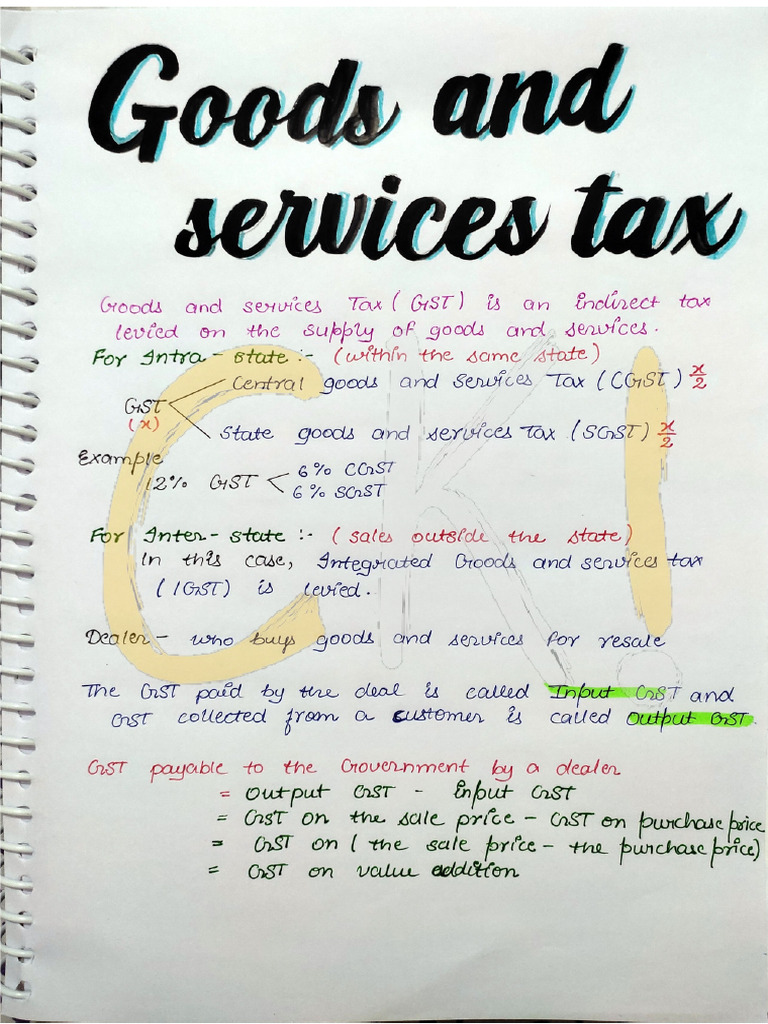 Goods and
services tax
Goods and services Tax (GST) is an indirect tax
levied on the supply of goods and services.
For Intra-state :- (within the same state)
Central goods and services Tax (CGST) x/2
GST
(x)
State goods and services Tax (SGST) x/2
Example
12% GST
6% CGST
6% SGST
For Inter-state :- (sales outside the state)
In this case, Integrated Goods and services tax
(IGST) is levied.
Dealer - who buys goods and services for resale
The GST paid by the deal is called Input GST and
GST collected from a customer is called output GST.
GST payable to the Government by a dealer
= output GST - Input GST
= GST on the sale price - GST on purchase price
= GST on (the sale price - the purchase price)
= GST on value addition
CK!